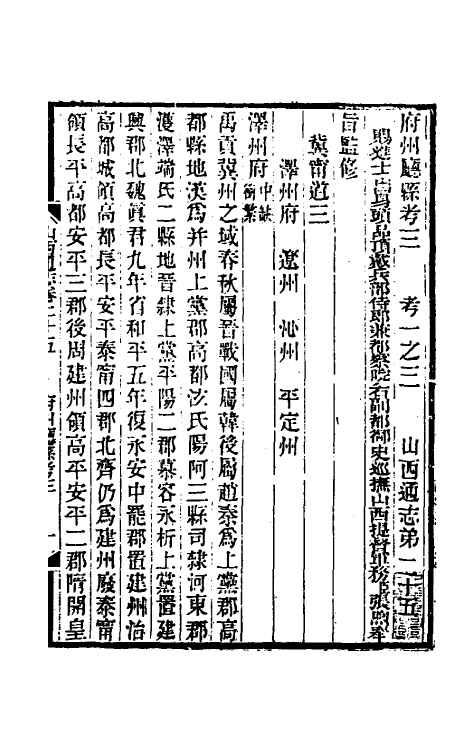 府州廳縣考三 考一之三 山西通志第二十五
賜進士出身頭品頂戴兵部侍郎兼都察院右副都御史巡撫山西提督軍務張煦奉
旨監修
冀甯道三
澤州府 遼州 沁州 平定州
澤州府中缺衝繁
禹貢冀州之域春秋屬晉戰國屬韓後屬趙秦爲上黨郡高
都縣地漢爲并州上黨郡高都泫氏陽阿三縣司隸河東郡
濩澤端氏二縣地晉隸上黨平陽二郡慕容永析上黨置建
興郡北魏眞君九年省和平五年復永安中罷郡置建州治
高都城領高都長平安平泰甯四郡北齊仍爲建州廢泰甯
領長平高都安平三郡後周建州領高平安平二郡隋開皇